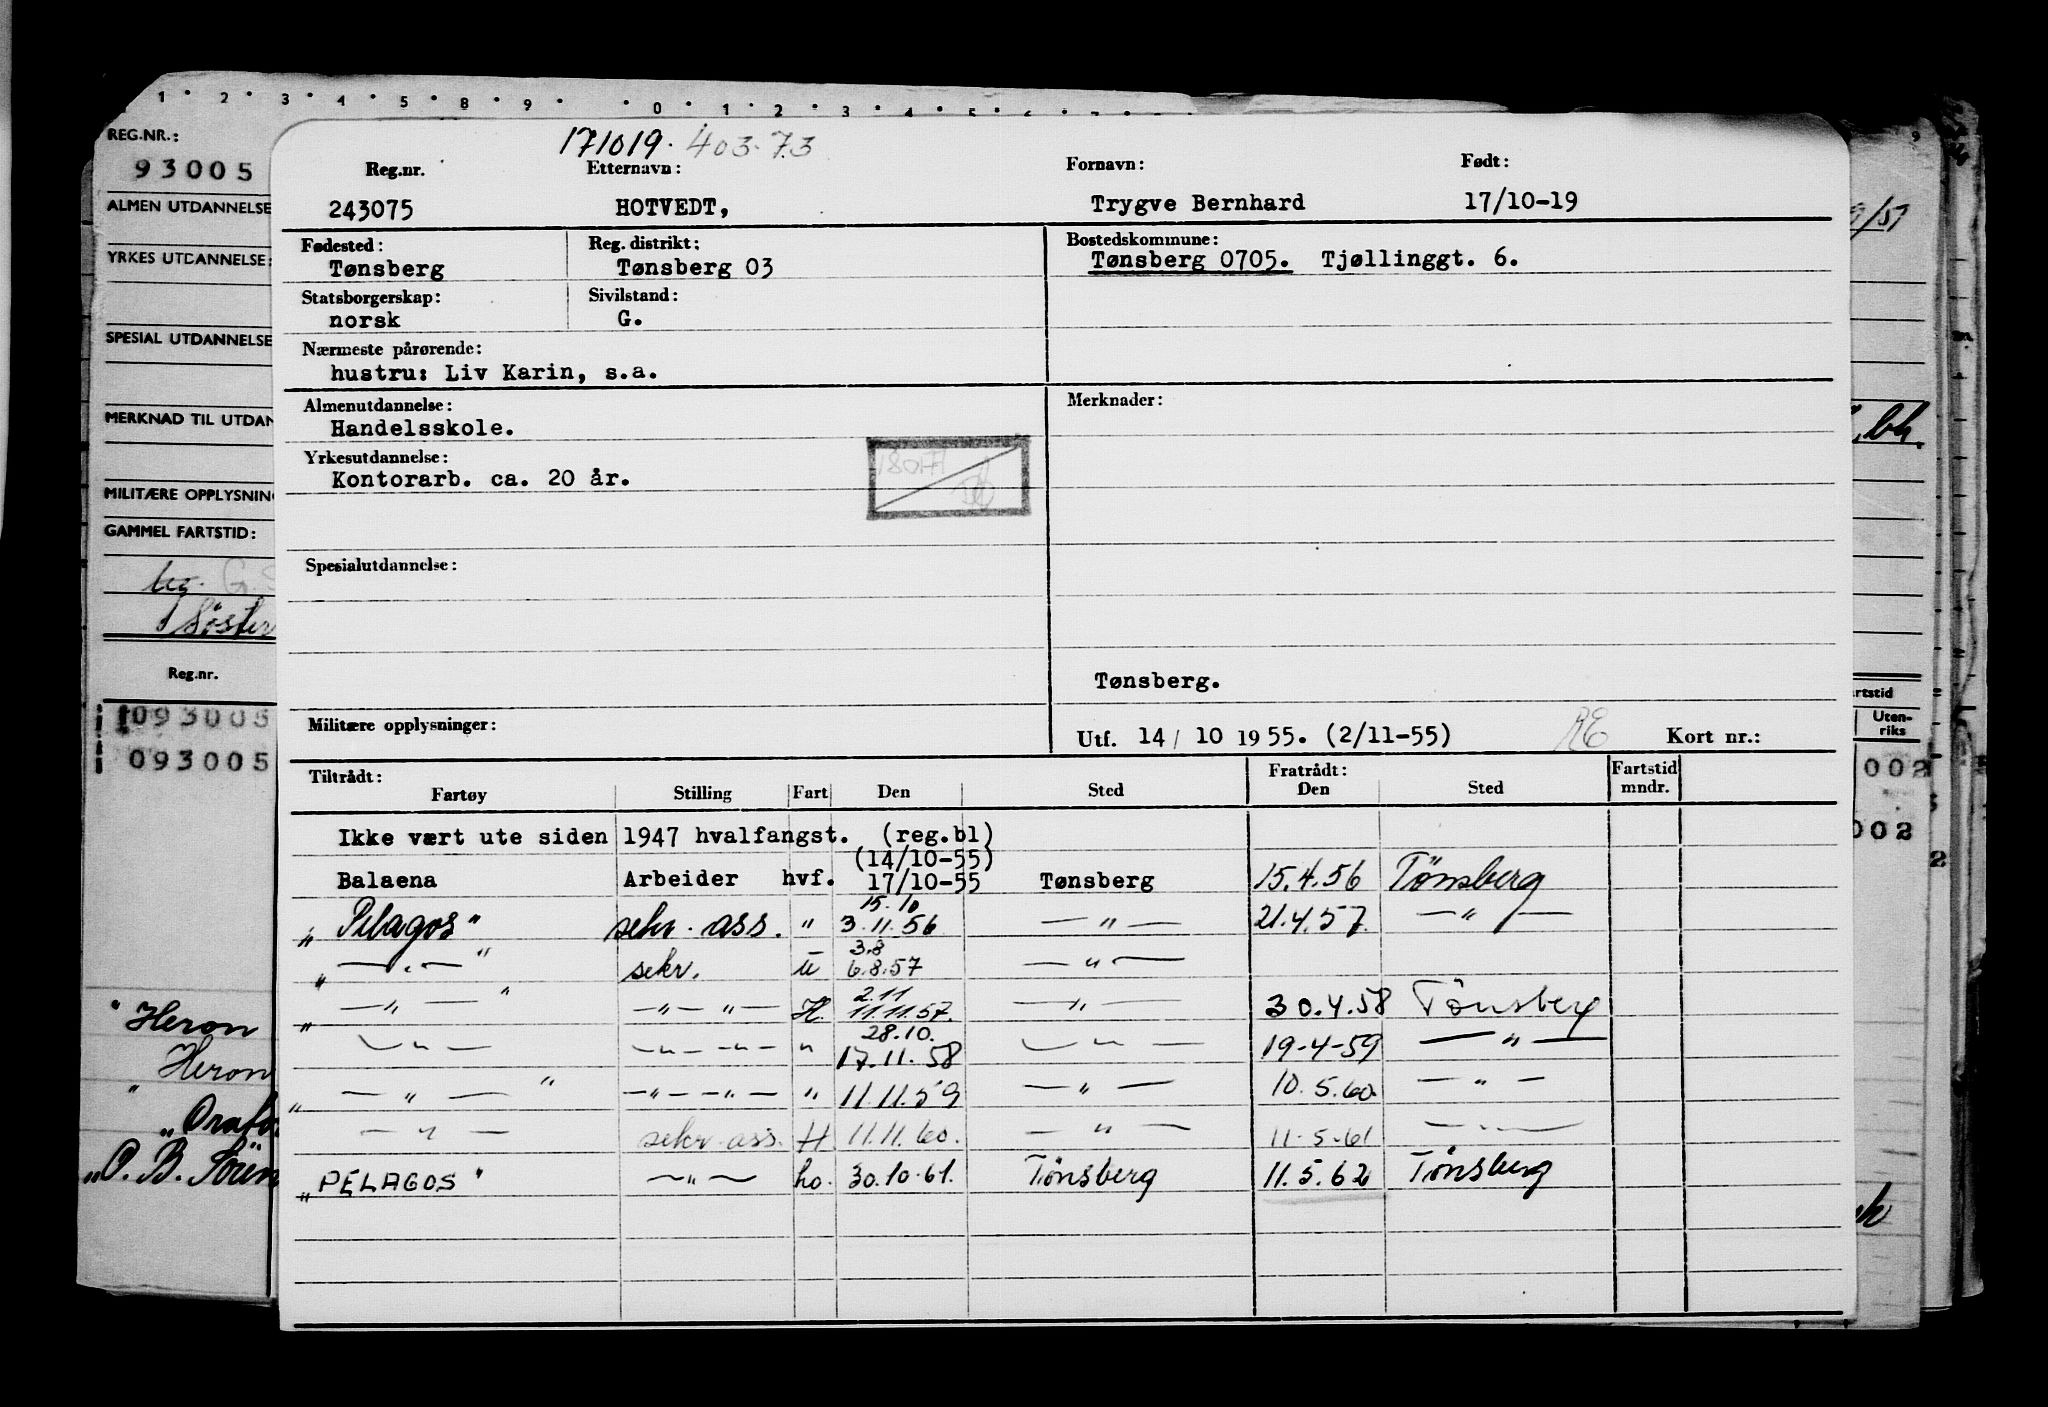 1 2 3 4 5 8 9 0 1 2 3 4 5 6 7
REG.NR.:
93005
ALMEN UTDANNELSE
YRKES UTDANNELSE:
SPESIAL UTDANNELSE
MERKNAD TIL UTDAN
MILITÆRE OPPLYSNIN
GAMMEL FARTSTID:
Reg.nr.
093005
093005
"Heron
Heron
"O. B. Sören
171019. 403.73
Reg.nr. Etternavn: Fornavn: Født:
243075 HOTVEDT, Trygve Bernhard 17/10-19
Fødested: Reg. distrikt: Bostedskommune:
Tønsberg Tønsberg 03 Tønsberg 0705. Tjøllinggt. 6.
Statsborgerskap: Sivilstand:
norsk G.
Nærmeste pårørende:
hustru: Liv Karin, s.a.
Almenutdannelse: Merknader:
Handelsskole.
Yrkesutdannelse:
Kontorarb. ca. 20 år.
Spesialutdannelse:
Tønsberg.
Militære opplysninger:
Utf. 14/ 10 1955. (2/11-55) RE Kort nr.:
Tiltrådt: Fratrådt: Fartstid
Fartøy Stilling Fart Den Sted Den Sted mndr.
Ikke vært ute siden 1947 hvalfangst. (reg.bl)
(14/10-55)
Balaena Arbeider hvf. 17/10-55 Tønsberg 15.4.56 Tønsberg
15.10
"Pelagos" sekr. ass. " 3.11.56 — " — 21.4.57. — " —
3.8
" — " — " sekr. u 6.8.57 — " —
2.11
" — " — " — " — " — H. 11.11.57. — " — 30.4.58 Tønsberg
28.10.
— " — — " — " — " 17.11.58 — " — 19-4-59 — " —
" — " — " — " — " — " 11.11.59 — " — 10.5.60 — " —
— " — sekr. ass. H 11.11.60. — " — 11-5-61 — " —
"PELAGOS" — " — ho. 30.10.61. Tønsberg 11.5.62 Tønsberg
9
bh.
rtstid
Uten-
riks
002
002
2